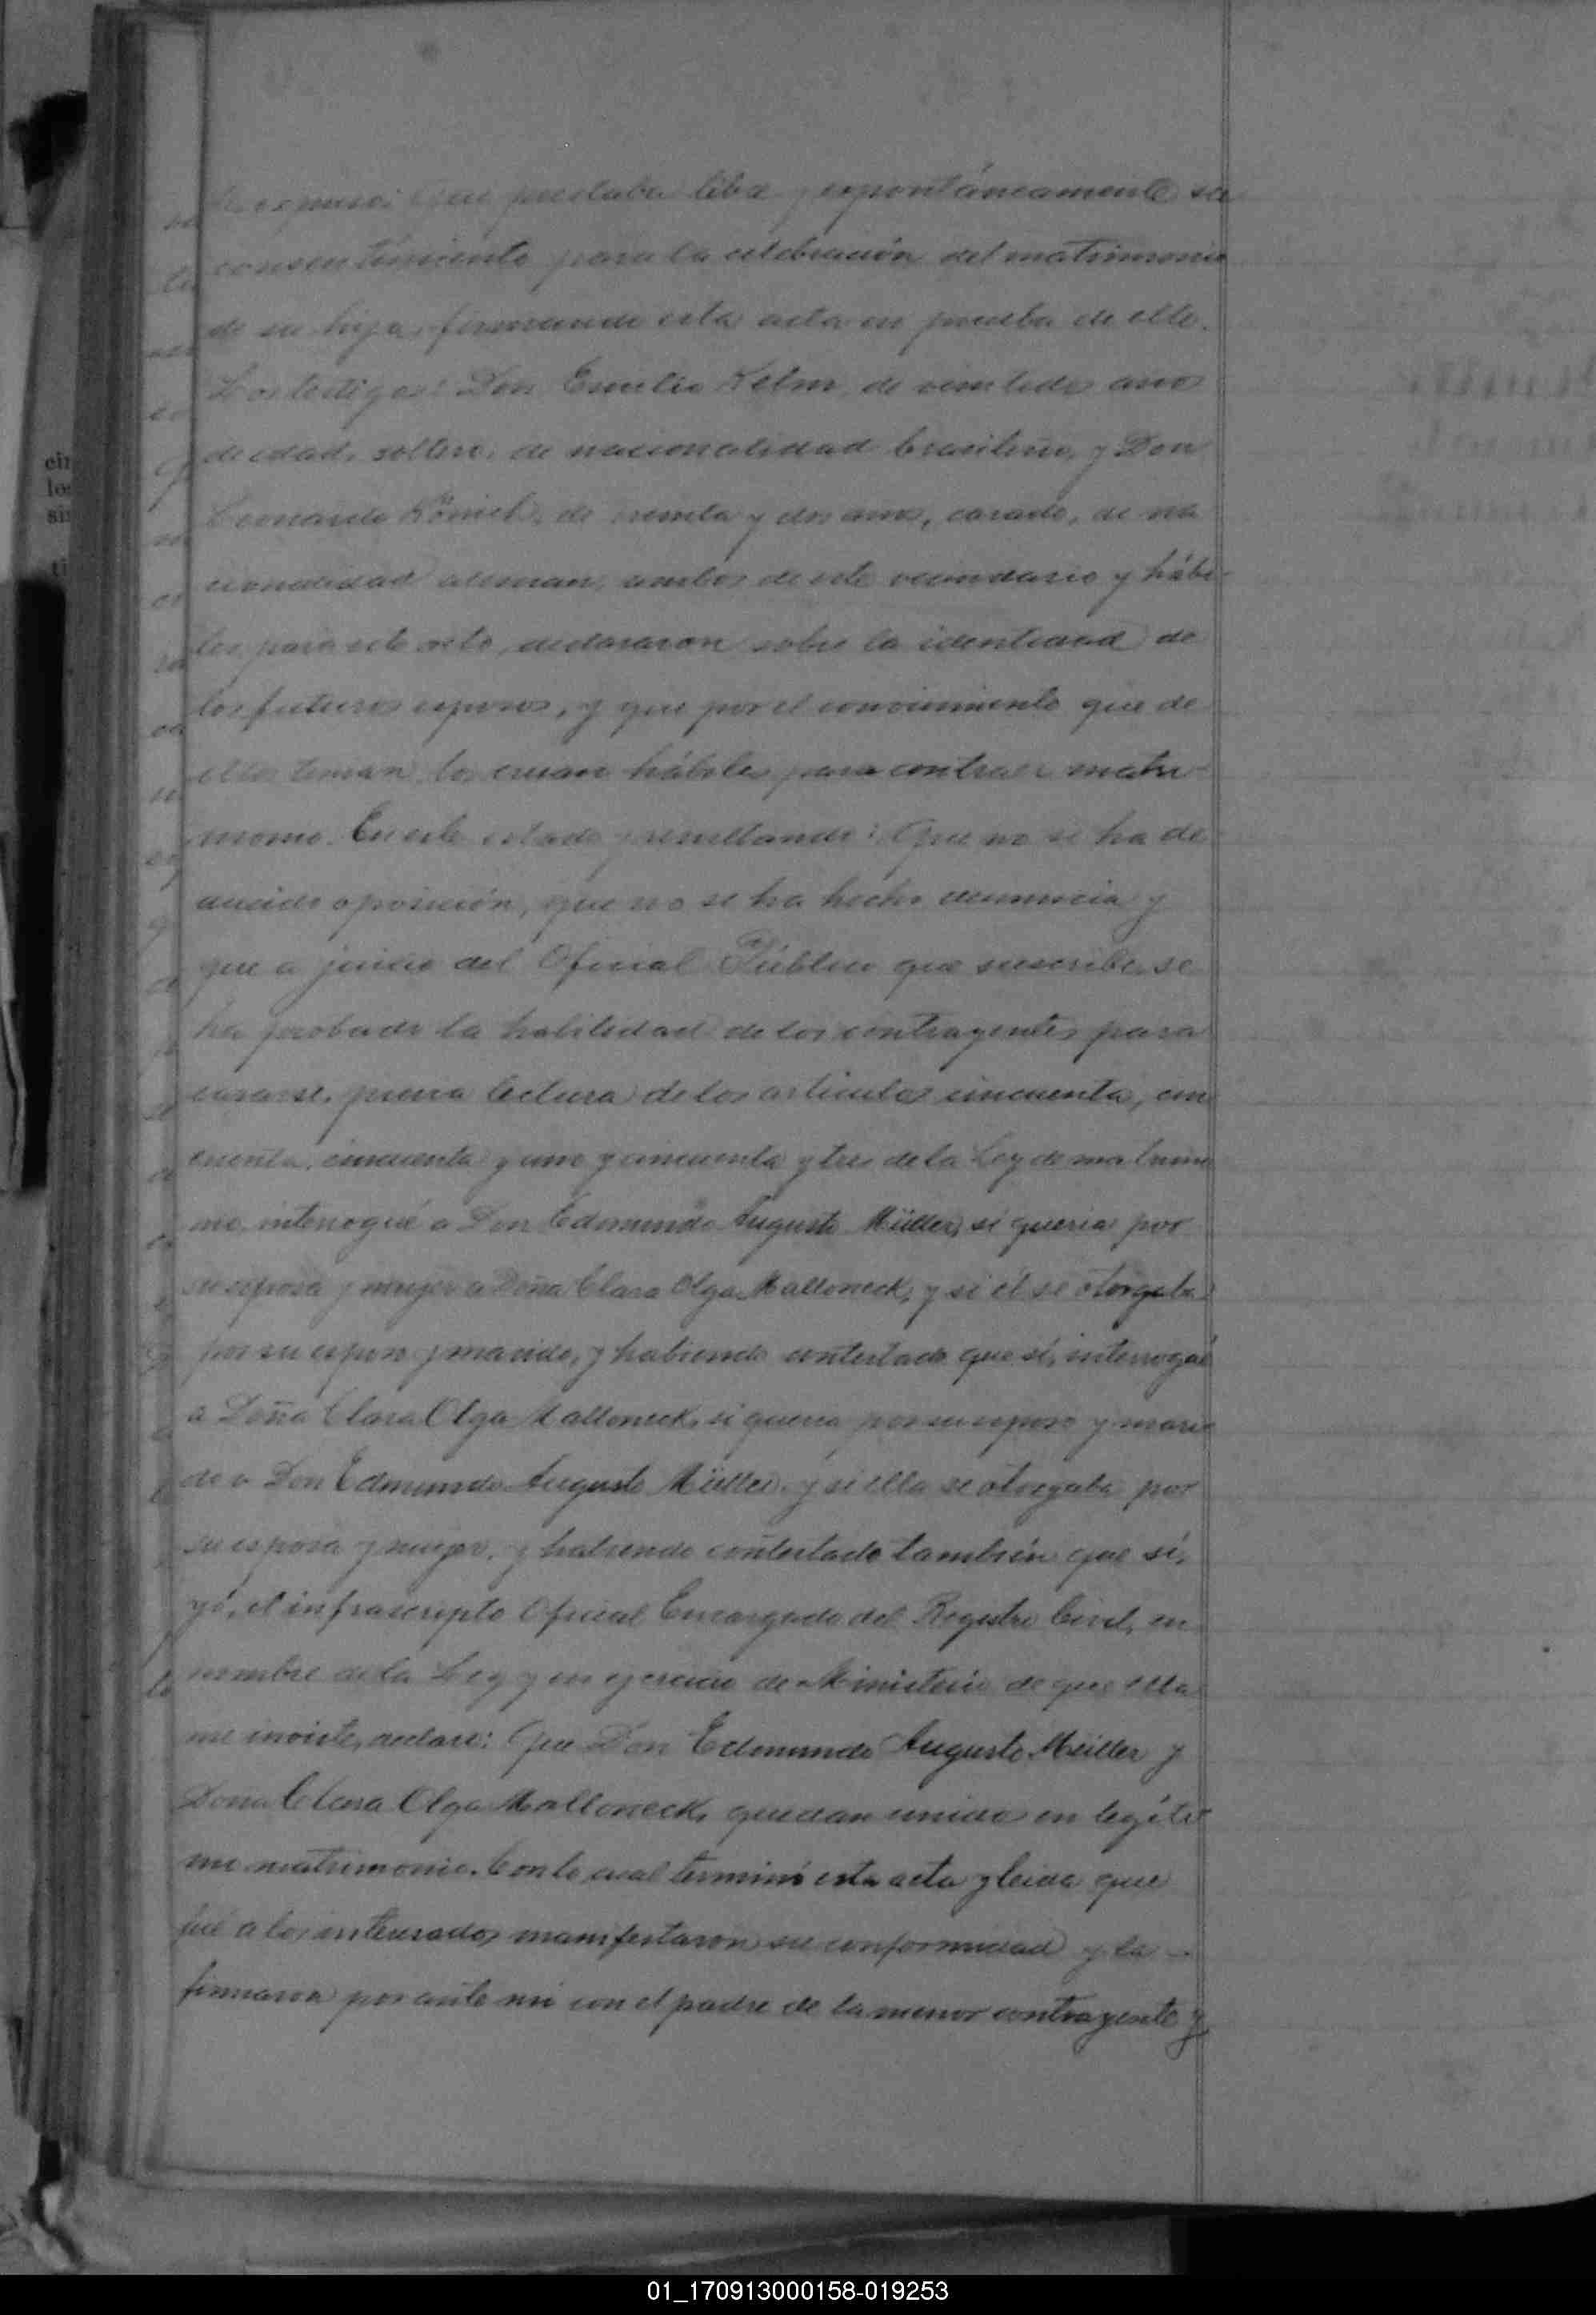 expuso: Que prestaba libre y espontáneamente su
consentimiento para la celebración del matrimonio
de su hija, firmando esta acta en prueba de ello.
Los testigos: Don Emilio Kelm, de veintidos años
de edad, soltero, de nacionalidad brasilero, y Don
Leonardo Römich, de treinta y dos años, casado, de na
cionalidad aleman, ambos de este vecindario y hábi-
les para este acto, declararon sobre la identidad de
los futuros esposos, y que por el conocimiento que de
ellos tenian los creian hábiles para contraer matri-
monio. En este estado y resultando: Que no se ha de
ducido oposición, que no se ha hecho denuncia y
que a juicio del Oficial Público que suscribe, se
ha probado la habilidad de los contrayentes para
casarse, previa lectura de los articulos cincuenta, cin
cuenta, cincuenta y uno y cincuenta y tres de la Ley de matrimo
nio, interrogué a Don Edmundo Augusto Müller, si queria por
su esposa y mujer a Doña Clara Olga Malloneck, y si él se otorgaba
por su esposo y marido, y habiendo contestado que sí, interrogué
a Doña Clara Olga Malloneck, si queria por su esposo y mari
do a Don Edmundo Augusto Müller, y si ella se otorgaba por
su esposa y mujer, y habiendo contestado también que sí,
yó, el infrascripto Oficial Encargado del Registro Civil, en
nombre de la Ley y en ejercicio de Ministerio de que ella
me inviste, declaro: Que Don Edmundo Augusto Müller y
Doña Clara Olga Malloneck, quedan unidos en legíti
mo matrimonio. Con lo cual terminó esta acta y leida que
fué a los interesados manifestaron su conformidad y la -
firmaron por ante mi con el padre de la menor contrayente y
cin
los
sin
01_170913000158-019253